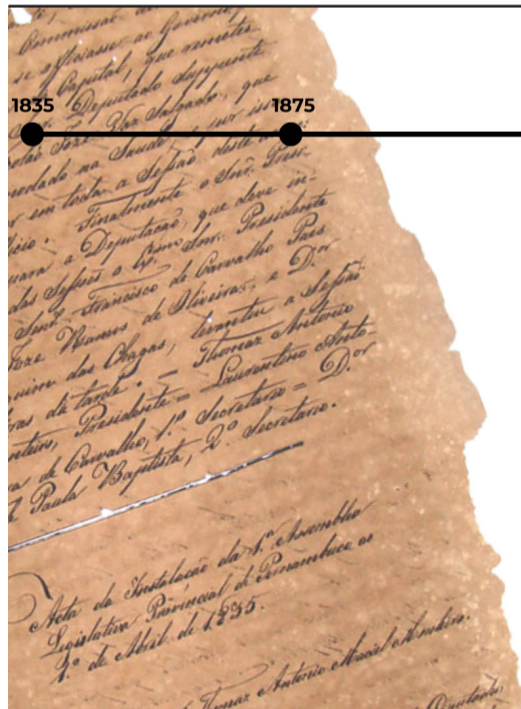 Commissão
se officiasse ao Governo,
Capital, que remetes-
Deputado Supplente
Joze Vaz Salgado, que
modado na Saude, e por is-
em toda a Sessão deste
1835 1875
ficio. Finalmente o Snr. Presi-
para a Deputação, que deve in-
das Sessões o Ex.mo Snr. Presidente
Snrs. Francisco de Carvalho Paes
Joze Ramos de Oliveira, e D.or
quim das Chagas, levantou a Sessão
ras da tarde. = Thomaz Antonio
Monteiro, Presidente = Laurentino Anto-
ra de Carvalho, 1.º Secretario = D.or
Paula Baptista, 2.º Secretario.
Acta da Instalação da 1.ª Assemblea
Legislativa Provincial de Pernambuco ao
1.º de Abril de 1835.
Thomaz Antonio Maciel Monteiro.
Deputados,